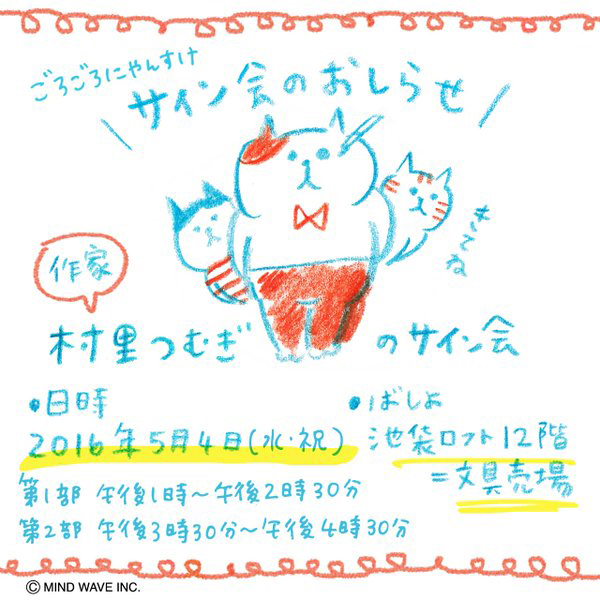 ごろごろにゃんすけ
サイン会のおしらせ
きてね
作家
村里つむぎ のサイン会
•日時
2016年5月4日(水・祝)
第1部 午後1時〜午後2時30分
第2部 午後3時30分〜午後4時30分
•ばしょ
池袋ロフト12階
=文具売場
© MIND WAVE INC.